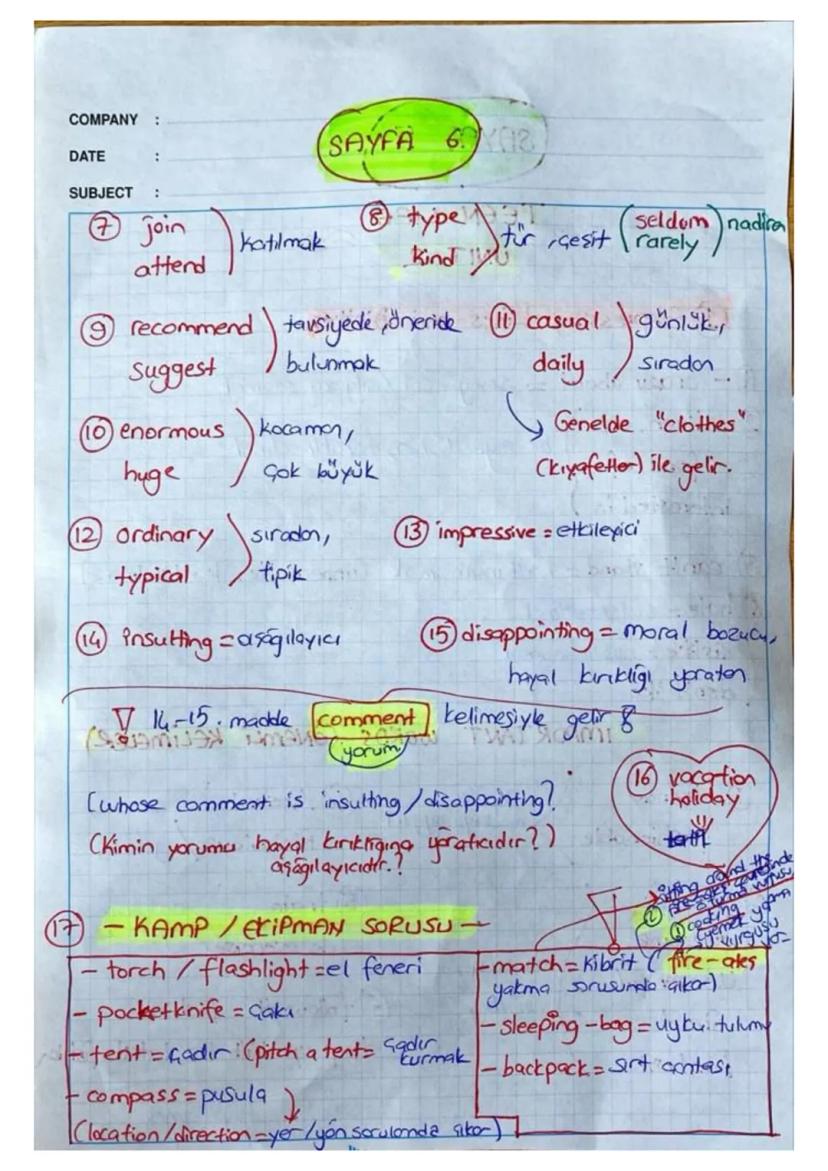 COMPANY :
DATE :
SUBJECT :
SAYFA 6
7 join attend ) katılmak
8 type kind ) tür, çeşit ( seldom rarely ) nadiren
9 recommend suggest ) tavsiyede, öneride bulunmak
11 casual daily ) günlük, sıradan
Genelde "clothes"
(kıyafetler) ile gelir.
10 enormous huge ) kocaman, çok büyük
12 ordinary typical ) sıradan, tipik
13 impressive = etkileyici
14 insulting = aşağılayıcı
15 disappointing = moral bozucu,
hayal kırıklığı yaratan
14-15. madde comment kelimesiyle gelir
yorum
(whose comment is insulting / disappointing?
(Kimin yorumu hayal kırıklığına yaratıcıdır?)
aşağılayıcıdır.?
16 vacation
holiday
tatil
17 - KAMP / EKİPMAN SORUSU -
- torch / flashlight = el feneri
- pocketknife = çakı
- tent = çadır (pitch a tent = çadır kurmak
- compass = pusula
(location / direction = yer / yön sorularında çıkar)
sitting around the
2
1 cooking
yemek yapma
- match = kibrit ( fire - ateş
yakma sorusunda çıkar)
- sleeping - bag = uyku tulumu
- backpack = sırt çantası